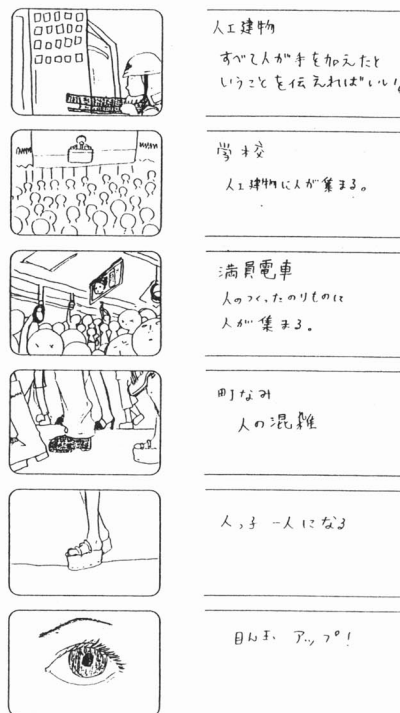 人工建物
すべて人が手を加えたと
いうことを伝えればいい。
学校
人工建物に人が集まる。
満員電車
人のつくったのりものに
人が集まる。
町なみ
人の混雑
人っ子一人になる
目ん玉 アップ!